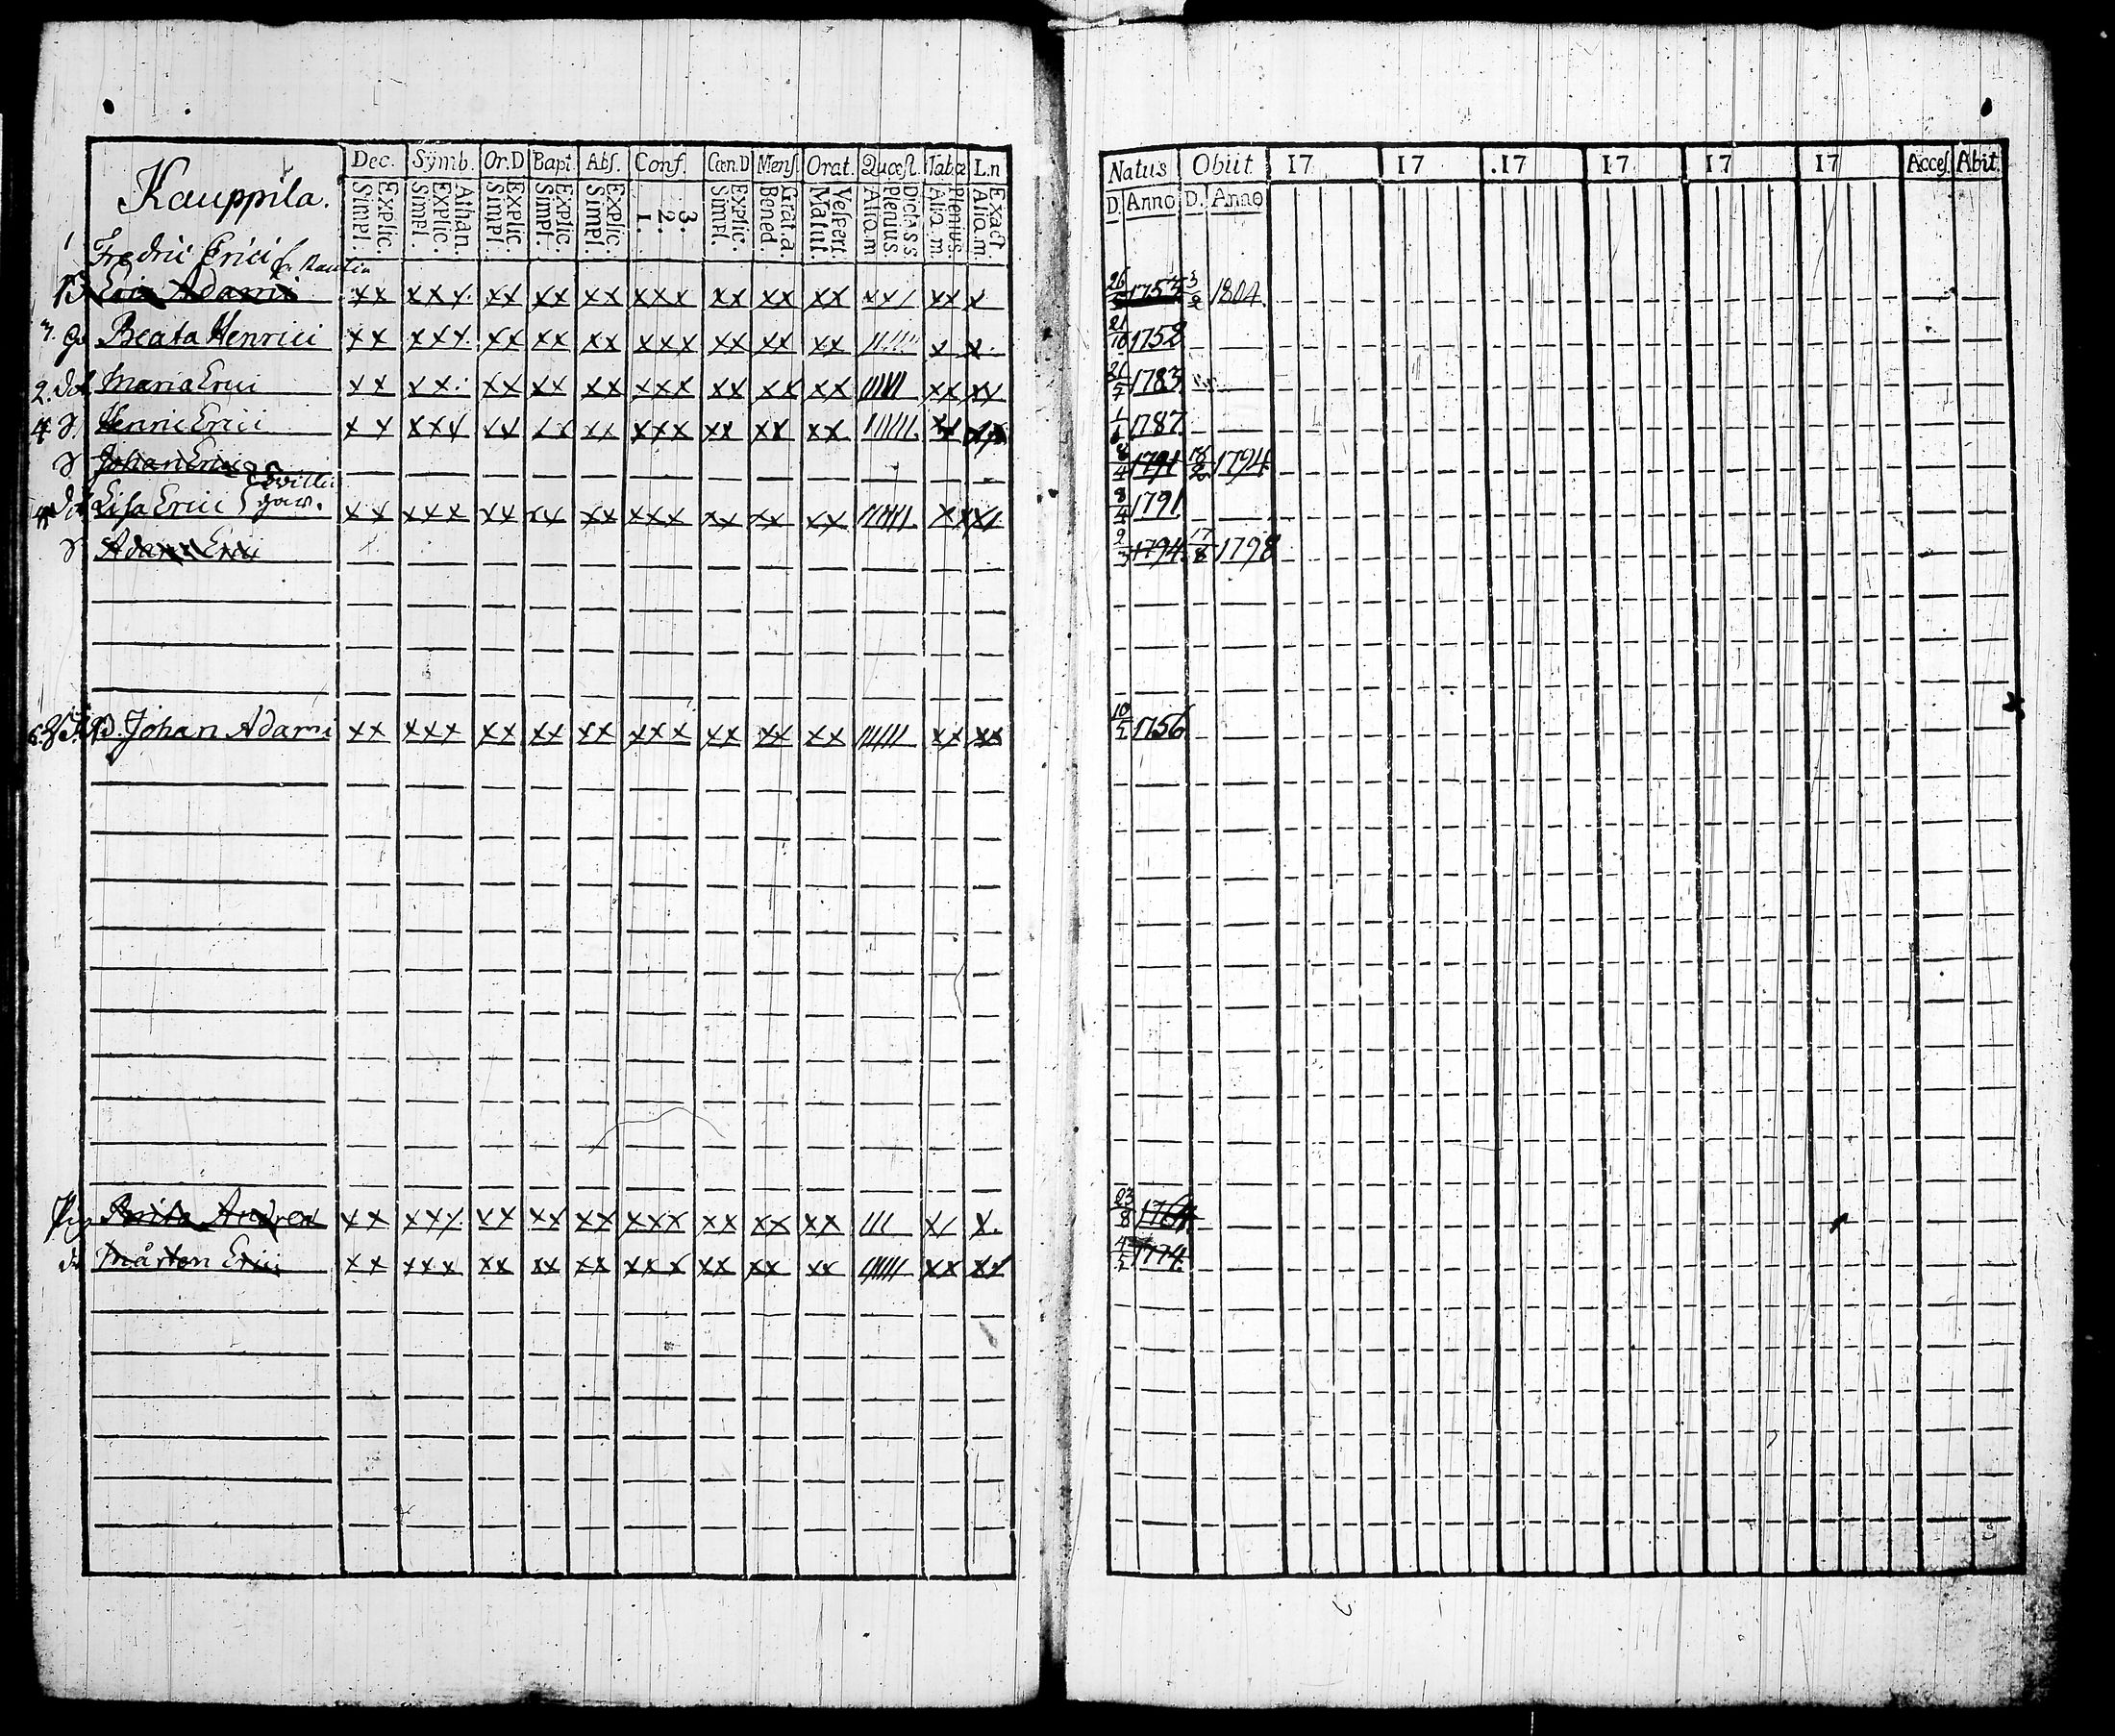 Kauppila.
Dec. Symb. Or.D Bapt. Abſ. Conf. Cœn.D Menſ. Orat. Quæſt. Tabæ L.n
Explic. Simpl. Athan. Explic. Simpl. Explic. Simpl. Explic. Simpl. Explic. Simpl. 3. 2. 1. Explic. Simpl. Grat.a. Bened. Veſpert. Matut. Dictass Plenius. Aliq.m Plenius. Aliq.m. Exact Aliq.m.
Natus Obiit 17 17 .17 17 17 17 Acceſ. Abit.
D. Anno D. Anno
1 Fredric Erici
Eric Adami xx xxx xx xx xx xxx xx xx xx xx/ xx x 26/5 1755 3/2 1804.
3. Beata Henrici xx xxx xx xx xx xxx xx xx xx x x 21/10 1758
2. Maria Erici xx xx xx xx xx xxx xx xx xx xx xx 21/7 1783
4 Henric Erici xx xxx xx xx xx xxx xx xx xx 1787
Johan Erici 8/4 1791 18/2 1794
Lisa Erici xx xxx xx xx xx xxx xx xx xx 8/4 1791
Adam Erici 2/3 1794 17/8 1798
Johan Adami xx xxx xx xx xx xxx xx xx xx xx xx 10/5 1756
Andrea xx xxx xx xx xx xxx xx xx xx /// x/ x. 23/8
Mårten Erici xx xxx xx xx xx xxx xx xx xx xx xx 1774.